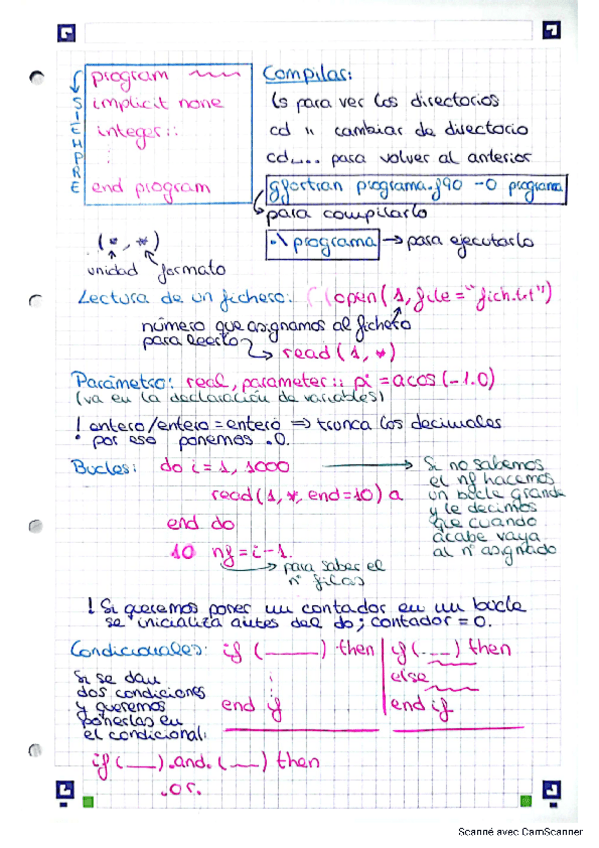 SIEMPRE
program
implicit none
integer ::
end program
Compilar:
ls para ver los directorios
cd " cambiar de directorio
cd.... para volver al anterior
gfortran programa.f90 -o programa
para compilarlo
.\programa → para ejecutarlo
(*, *)
unidad formato
Lectura de un fichero: open(1, file="fich.txt")
número que asignamos al fichero
para leerlo → read(1,*)
Parámetro: real, parameter :: pi = acos(-1.0)
(va en la declaración de variables)
! entero/entero = entero ⇒ trunca los decimales
por eso ponemos .0.
Bucles: do i = 1, 1000
read(1,*, end=10) a
end do
10 nf = i-1.
para saber el
nº filas
Si no sabemos
el nf hacemos
un bucle grande
y le decimos
que cuando
acabe vaya
al nº asignado
! Si queremos poner un contador en un bucle
se inicializa antes del do; contador = 0.
Condicionales: if (____) then
end if
if (.__) then
else
end if
Si se dan
dos condiciones
y queremos
ponerlas en
el condicional:
if (__).and.(__) then
.or.
Scanné avec CamScanner